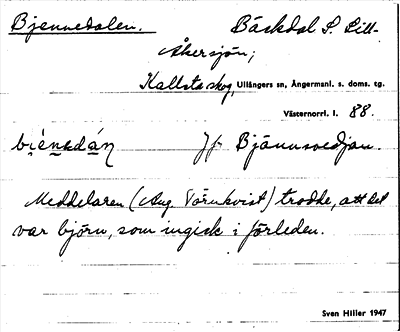 Bjennedalen. Bäckdal S. Lill-
Åkersjön;
Kallsta skog, Ullångers sn, Ångermanl. s. doms. tg.
Västernorrl. l. 88.
Jfr Bjännsvedjan.
Meddelaren (Aug. Törnkvist) trodde, att det
var björn, som ingick i förleden.
Sven Hiller 1947